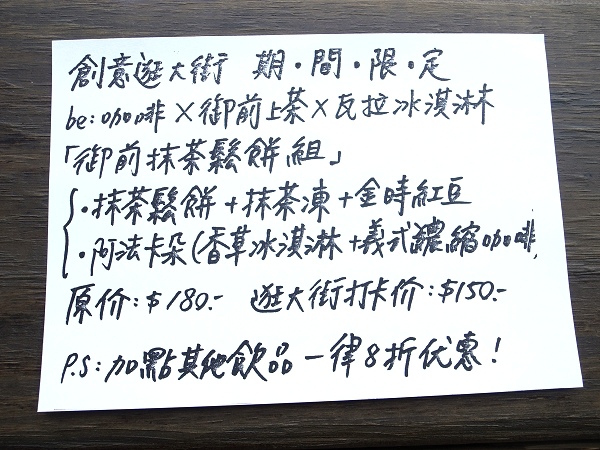 創意逛大街 期·間·限·定
be:咖啡×御前上茶×瓦拉冰淇淋
「御前抹茶鬆餅組」
·抹茶鬆餅+抹茶凍+金時紅豆
·阿法卡朵(香草冰淇淋+義式濃縮咖啡)
原价:$180.- 逛大街打卡价:$150.-
P.S:加點其他飲品一律8折优惠!